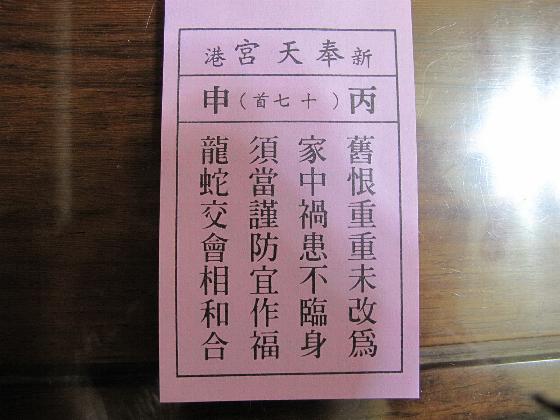 新奉天宮港
丙（十七首）申
舊恨重重未改爲
家中禍患不臨身
須當謹防宜作福
龍蛇交會相和合